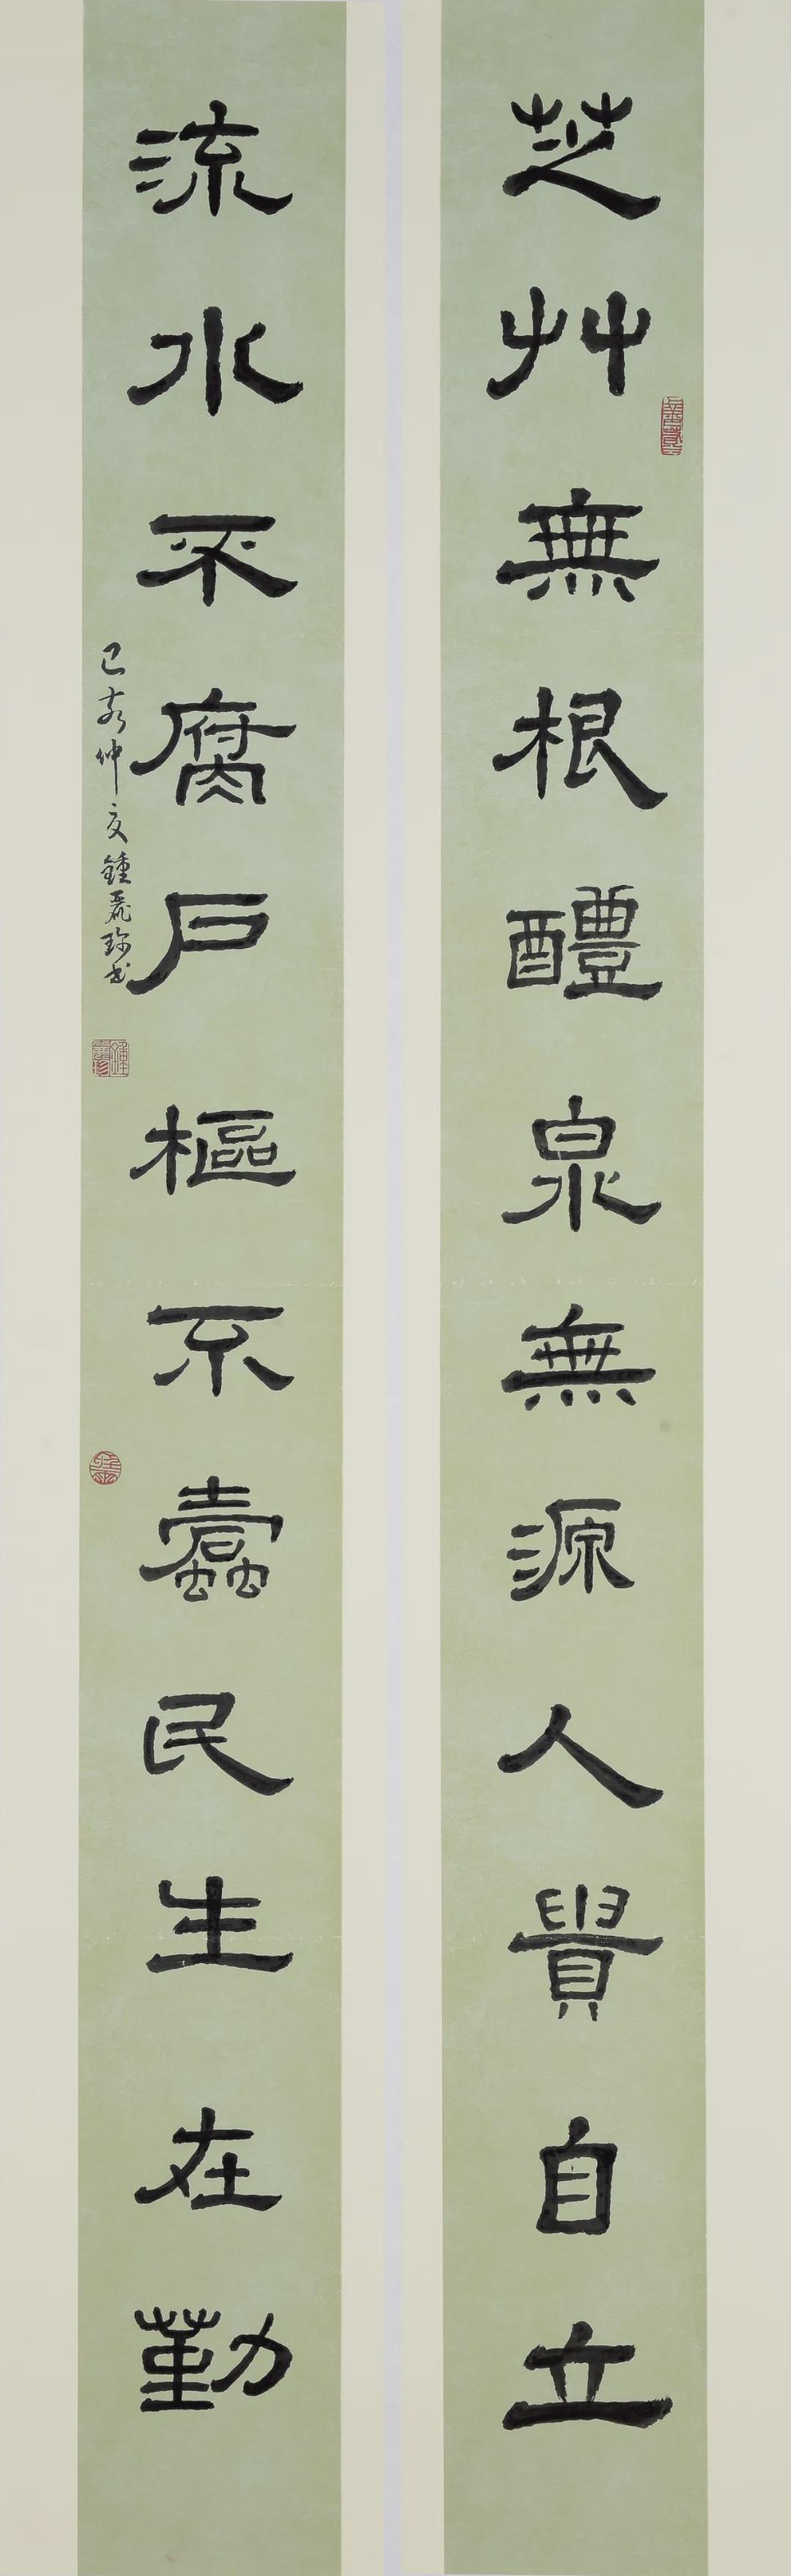 芝艸無根醴泉無源人貴自立
流水不腐戶樞不蠹民生在勤
己亥仲夏鍾麗珍書